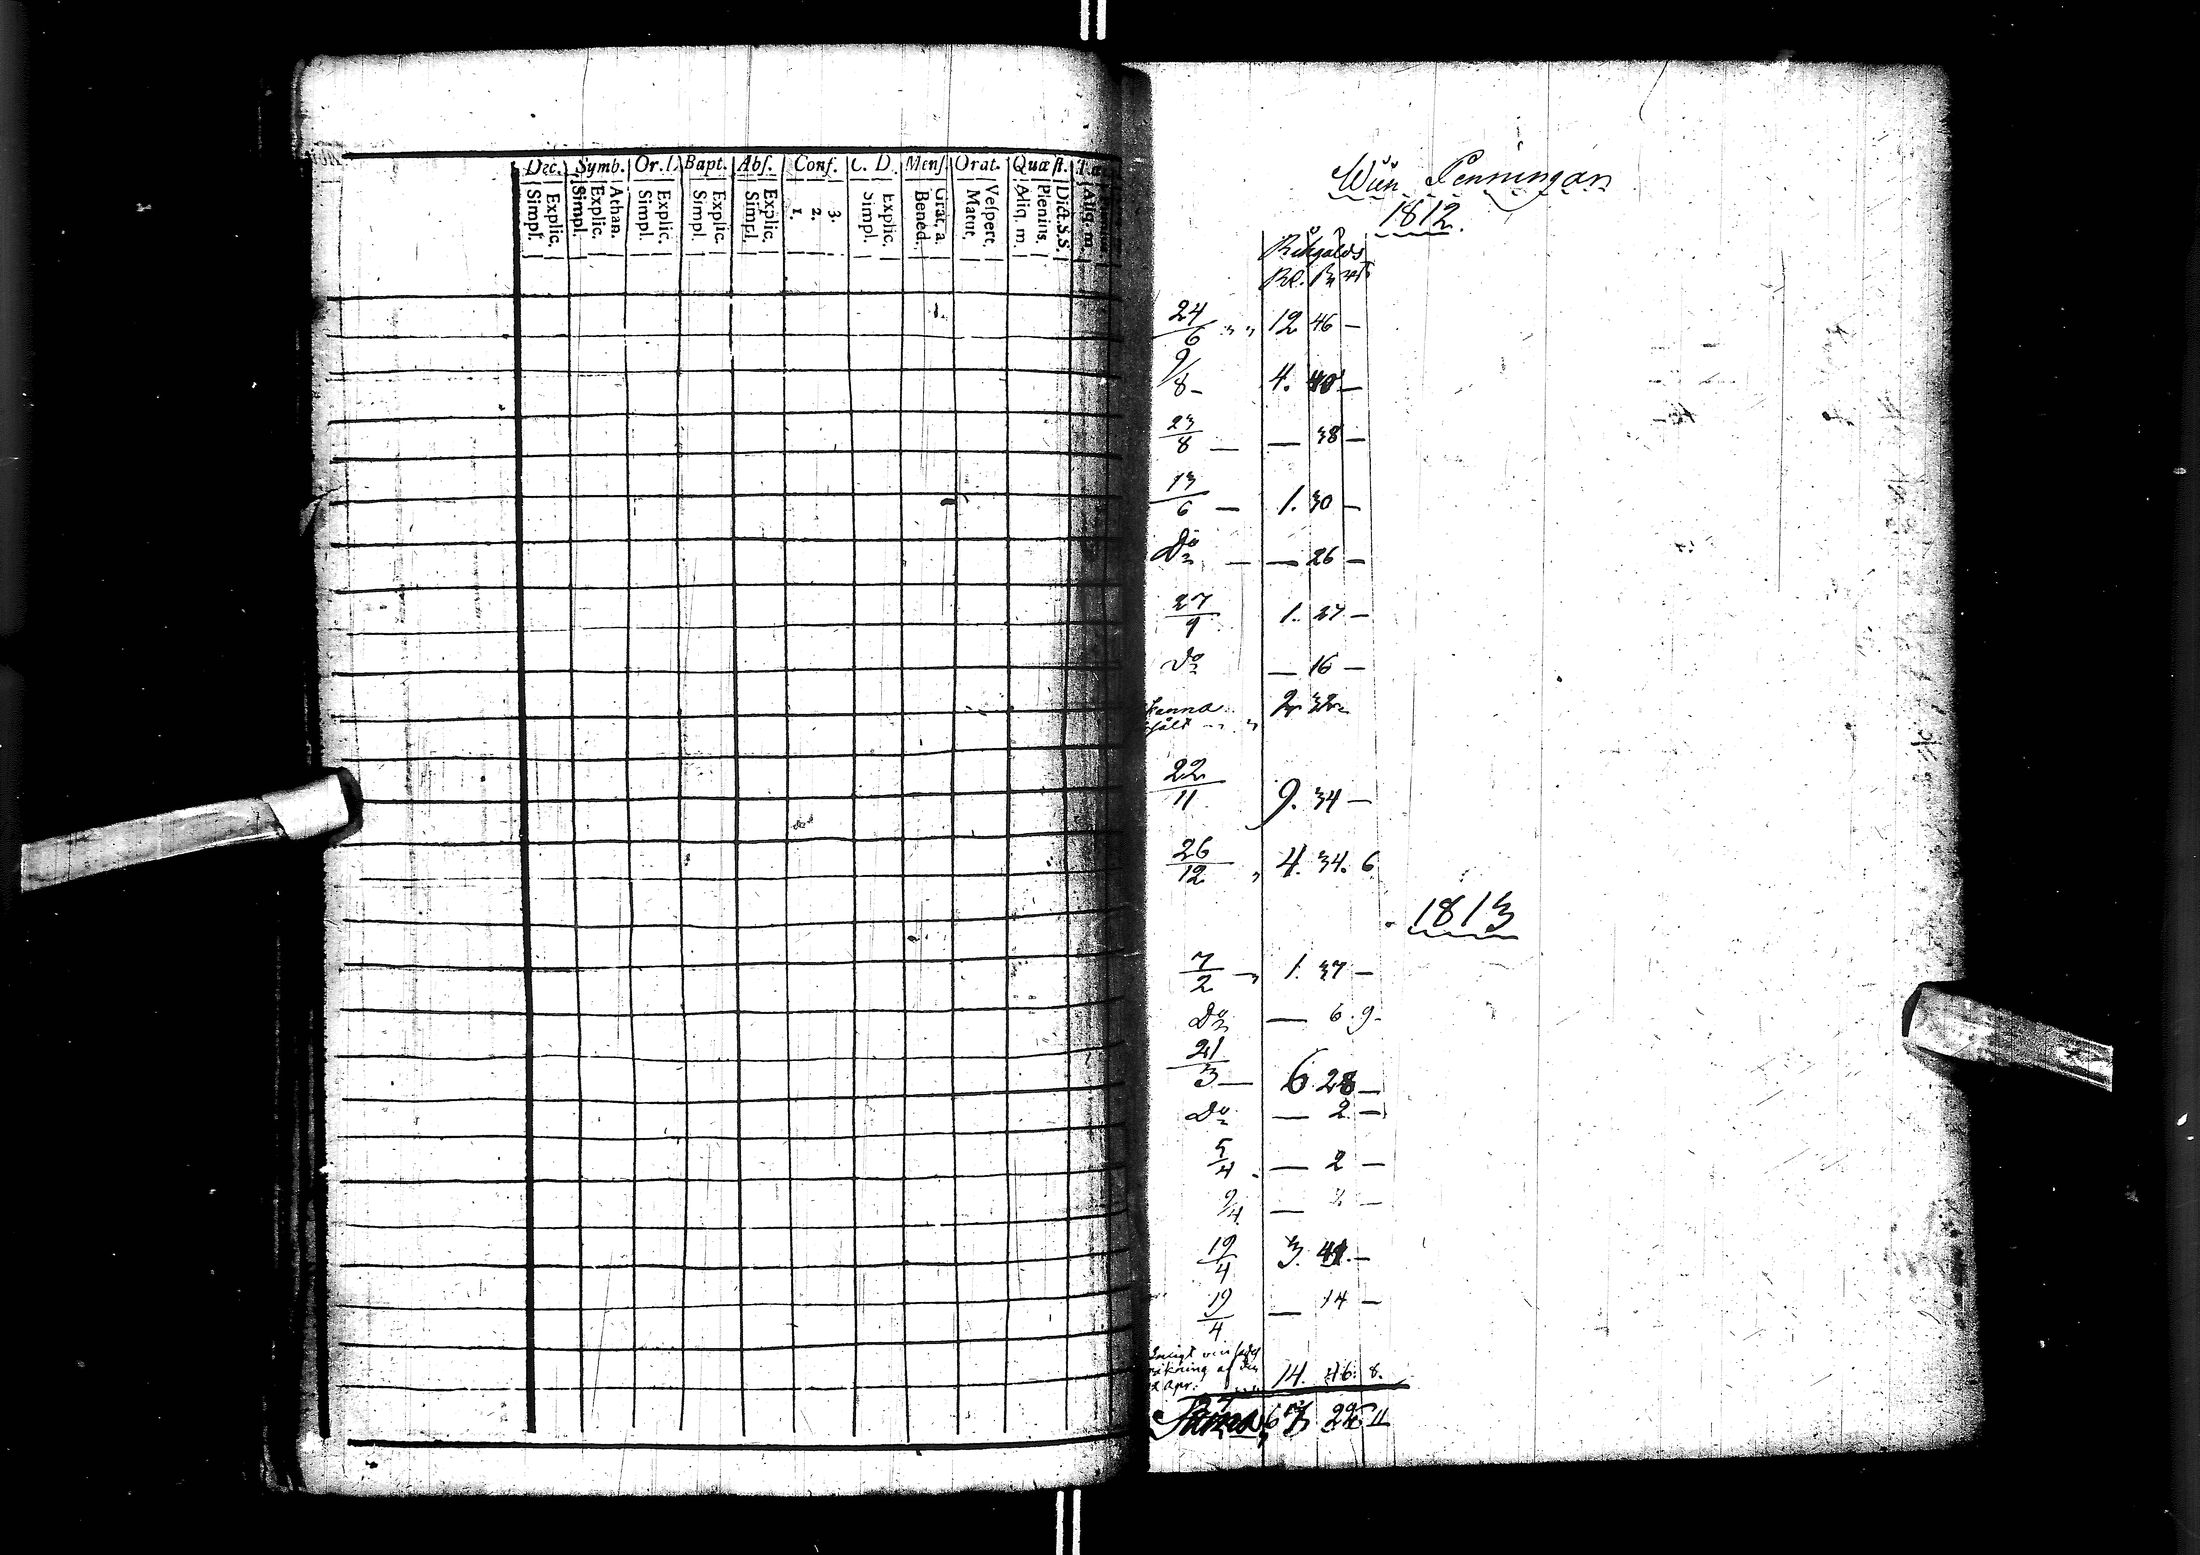 Dec. Symb. Or. D. Bapt. Abſ. Conf. C. D. Menſ. Orat. Quæſt.
Explic. Simpl. Athan. Explic. Simpl. Explic. Simpl. Explic. Simpl. Explic. Simpl. 3. 2. 1. Explic. Simpl. Grat. a. Bened. Veſpert. Matut. Dict. S.S. Plenius. Aliq. m. Aliq. m.
Win Penningan
1812.
Rikgälds
Rd. ß rst
24/6 " " 12 46 —
9/8 - 4. 40 —
23/8 — — 38 —
13/6 — 1. 30 —
Do — — 26 —
27/9 1. 27 —
Do — 16 —
22/11 9. 34 —
26/12 " 4. 34. 6
1813
7/2 — " 1. 37 —
Do — 6. 9.
21/3 — 6 28 —
Do — 2 —
5/4 . — 2 —
9/4 — 2 —
19/4 3. 41. —
19/4 — 14 —
14. 46. 8.
Suma